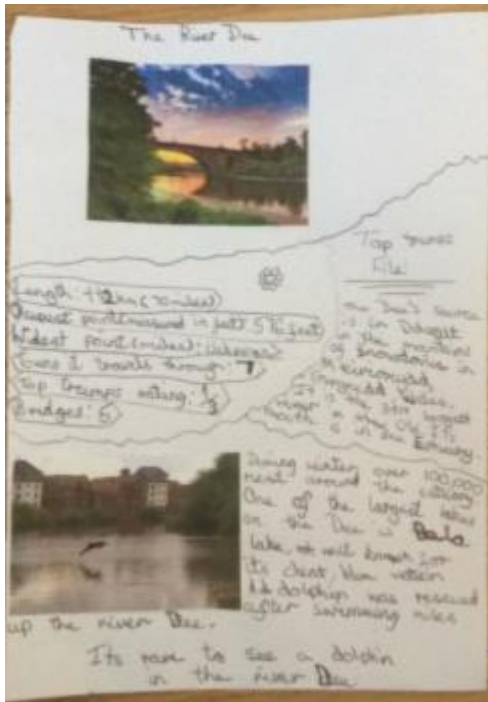 The River Dee
Top trumps
File
Length: 112km (70 miles)
Deepest point measured in feet: 5 feet
Widest point (miles): Unknown
Towns it travels through: 7
Top trumps rating:
Bridges: 6
The Dee's source
is in Dduallt
in the mountains
of Snowdonia in
Wales.
It is the largest
river in the UK. Its
mouth is in the Estuary.
During winter over 100,000
nest around the estuary
One of the largest lakes
on the Dee is Bala
Lake, well known for
its clear, blue water
A dolphin was rescued
after swimming miles
up the river Dee.
Its rare to see a dolphin
in the river Dee